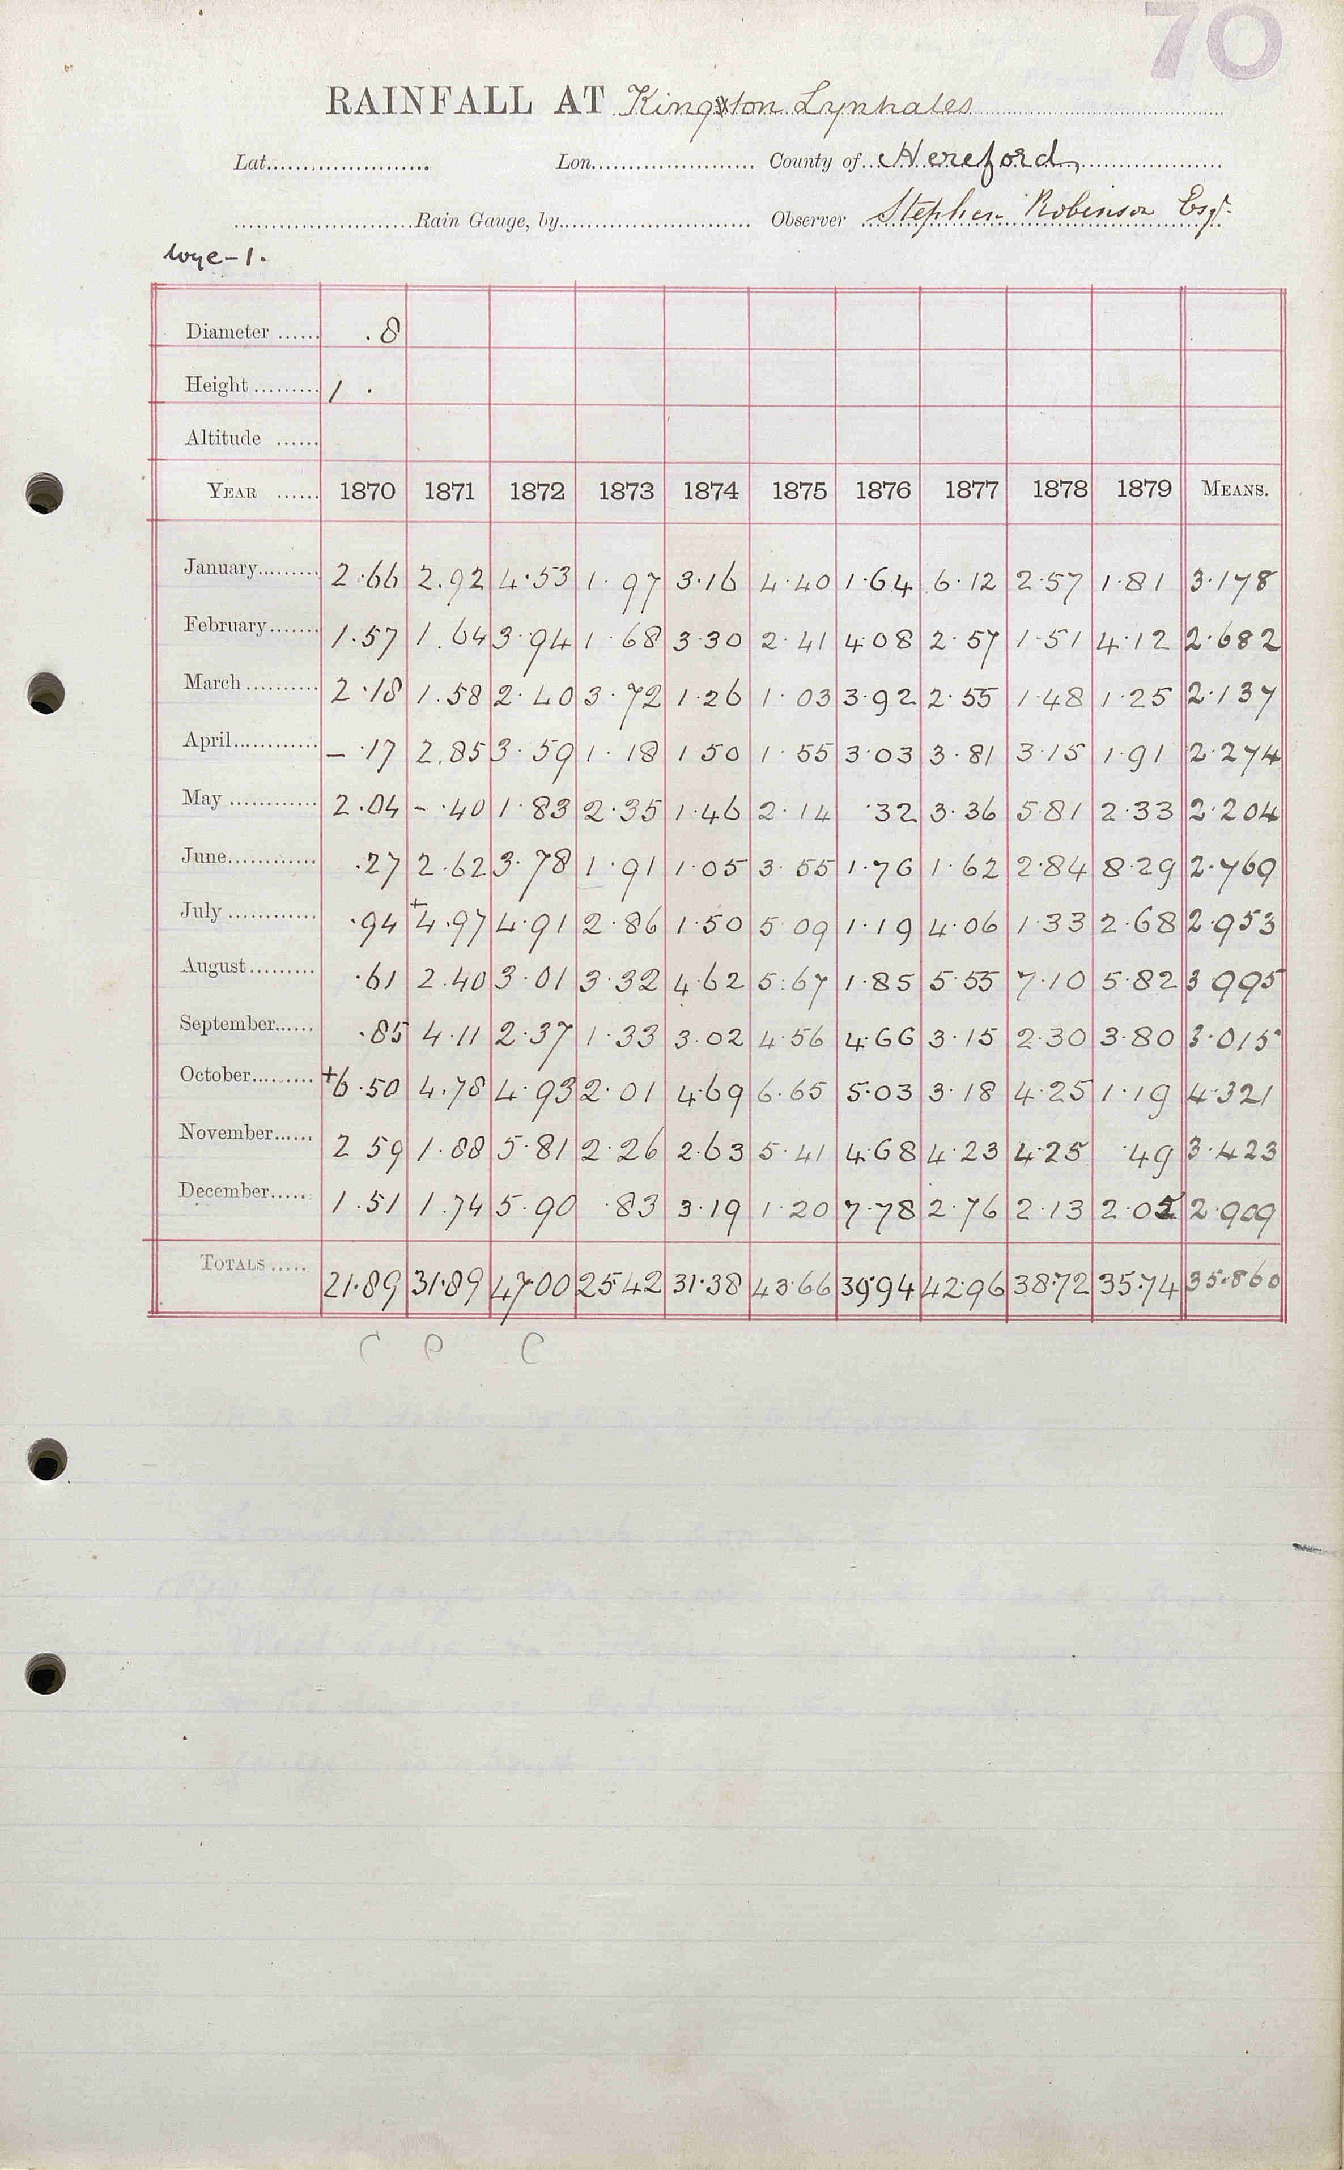 70
RAINFALL AT Kingston Lynhales
Lat. Lon. County of Hereford,
Rain Gauge, by Observer Stephen Robinson Esqr.
Wye-1.
Diameter ...... .8
Height ......... 1 .
Altitude ......
YEAR ...... 1870 1871 1872 1873 1874 1875 1876 1877 1878 1879 MEANS.
January......... 2.66 2.92 4.53 1.97 3.16 4.40 1.64 6.12 2.57 1.81 3.178
February....... 1.57 1.64 3.94 1.68 3.30 2.41 4.08 2.57 1.51 4.12 2.682
March .......... 2.18 1.58 2.40 3.72 1.26 1.03 3.92 2.55 1.48 1.25 2.137
April............ - .17 2.85 3.59 1.18 1.50 1.55 3.03 3.81 3.15 1.91 2.274
May ............ 2.04 - .40 1.83 2.35 1.46 2.14 .32 3.36 5.81 2.33 2.204
June............ .27 2.62 3.78 1.91 1.05 3.55 1.76 1.62 2.84 8.29 2.769
July ............ .94 +4.97 4.91 2.86 1.50 5.09 1.19 4.06 1.33 2.68 2.953
August......... .61 2.40 3.01 3.32 4.62 5.67 1.85 5.55 7.10 5.82 3.995
September...... .85 4.11 2.37 1.33 3.02 4.56 4.66 3.15 2.30 3.80 3.015
October......... +6.50 4.78 4.93 2.01 4.69 6.65 5.03 3.18 4.25 1.19 4.321
November...... 2.59 1.88 5.81 2.26 2.63 5.41 4.68 4.23 4.25 .49 3.423
December..... 1.51 1.74 5.90 .83 3.19 1.20 7.78 2.76 2.13 2.05 2.909
TOTALS ..... 21.89 31.89 47.00 25.42 31.38 43.66 39.94 42.96 38.72 35.74 35.860
C C C